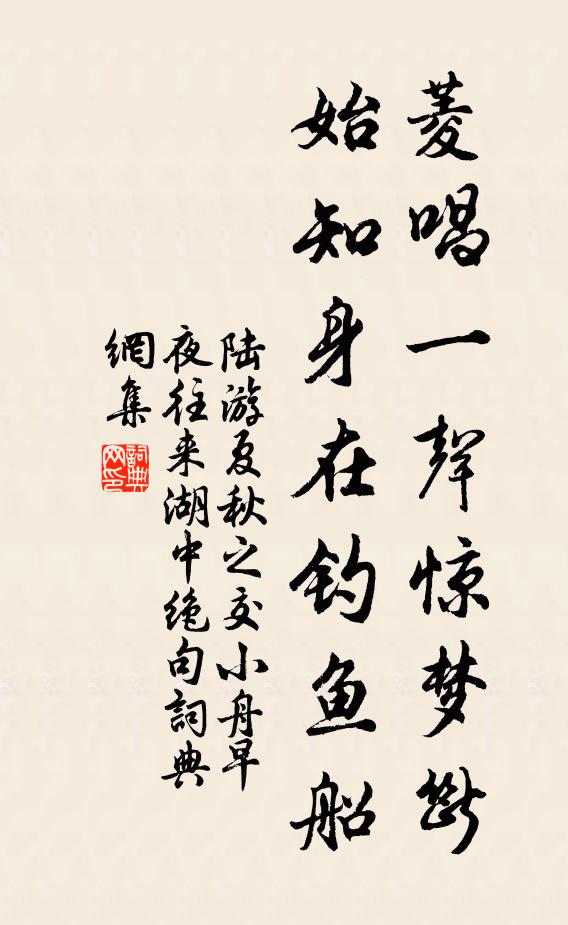 菱唱一聲惊梦斷
始知身在钓鱼船
陆游夏秋之交小舟早
夜往来湖中绝句詞典
網集
詞典
网印